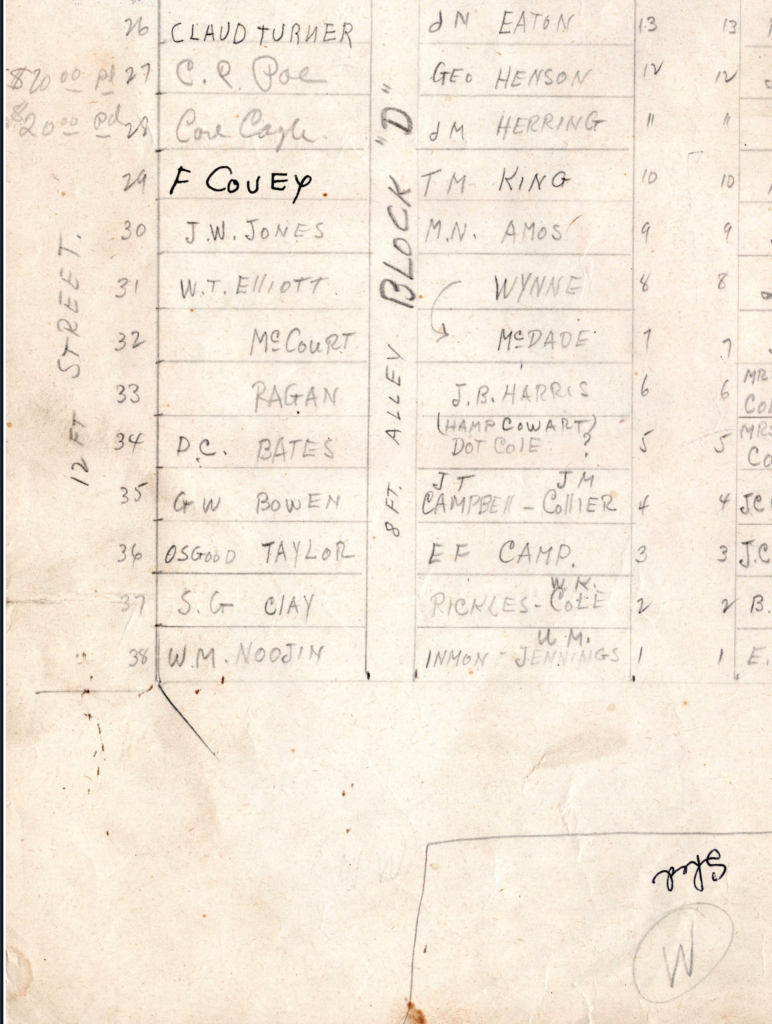 26 CLAUD TURNER J N EATON 13 13
$20 00 pd 27 C. P. Poe GEO HENSON 12 12
$20 00 pd 28 Cagle J M HERRING 11 11
29 F COVEY. T M KING 10 10
30 J.W. JONES M.N. AMOS 9 9
31 W.T. Elliott. WYNNE 8 8
32 McCOURT McDADE 7 7
33 RAGAN J.B. HARRIS 6 6 MR
(HAMP COWART)
34 D.C. BATES DOT COLE ? 5 5 MRS
J T J M
35 G W BOWEN CAMPBEll - COllIER 4 4 J.C
36 OSGOOD TAYLOR E F CAMP. 3 3 J.C
W.R.
37 S. G ClAY RICKLES - COLE 2 2 B.
U. M.
38 W.M. NOOJIN INMON - JENNINGS 1 1 E.
12 FT STREET.
8 FT. ALLEY BLOCK "D"
Shed
W